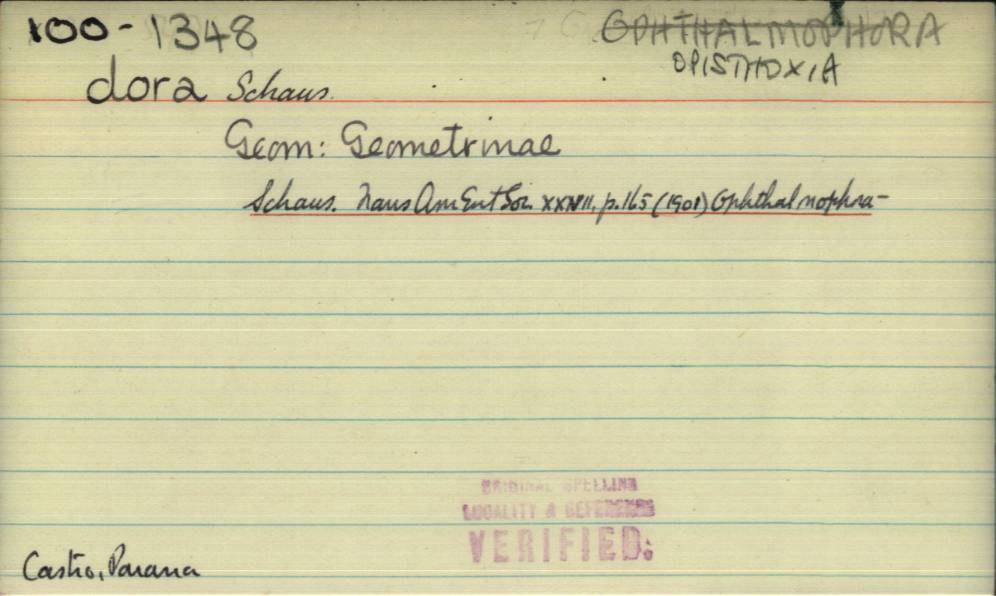 100-1348 OPHTHALMOPHORA
OPISTHOXIA
dora Schaus.
Geom: Geometrinae
Schaus. Trans Am Ent Soc. XXVII, p.165 (1901) Ophthalmophra-
ORIGINAL SPELLING
LOCALITY & REFERENCE
VERIFIED:
Castro, Parana